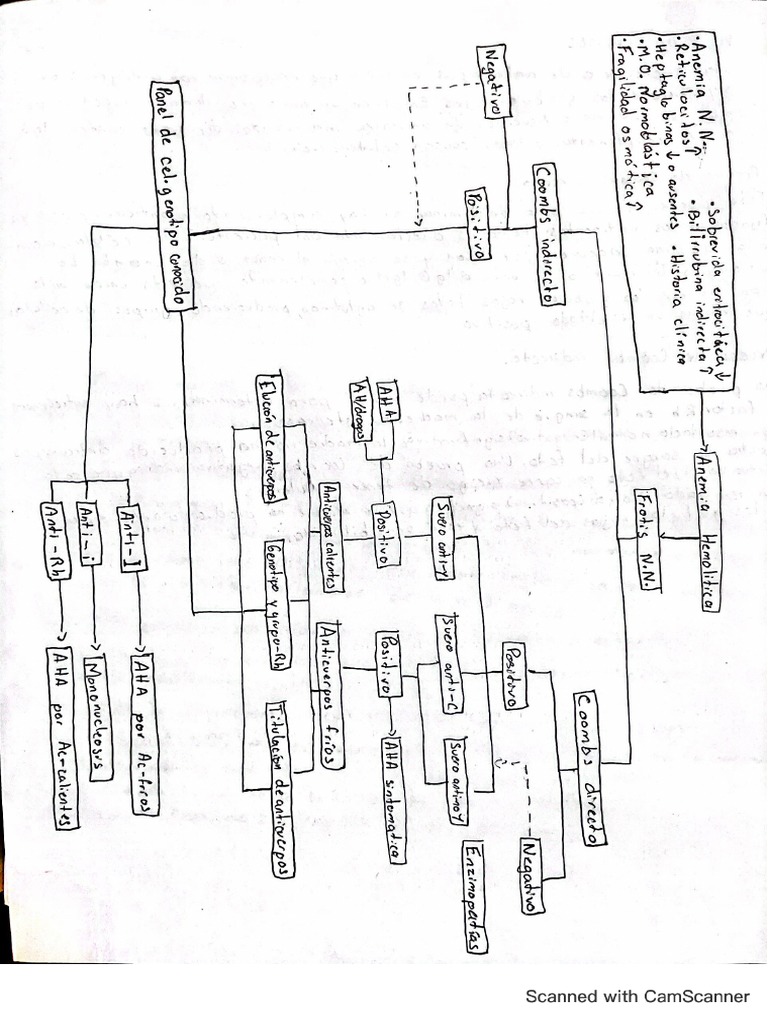 • Anemia N.N.
• Reticulocitos ↑
• Heptaglobinas ↓ o ausentes
• M.O. Normoblástica
• Fragilidad osmótica ↑
• Sobrevida eritrocitáica ↓
• Bilirrubina indirecta ↑
• Historia clínica
Anemia Hemolítica
Frotis N.N.
Coombs indirecto
Coombs directo
Negativo
Positivo
Positivo
Negativo
Enzimopatías
Suero anti-γ
Suero anti-C
Suero antinoγ
AHA
AH/drogas
Positivo
Positivo
AHA sintomatica
Anticuerpos calientes
Anticuerpos fríos
Elución de anticuerpos
Genotipo y grupo-Rh
Titulación de anticuerpos
Panel de cel. genotipo conocido
Anti-I
AHA por Ac-fríos
Anti-i
Mononucleosis
Anti-Rh
AHA por Ac-calientes
Scanned with CamScanner